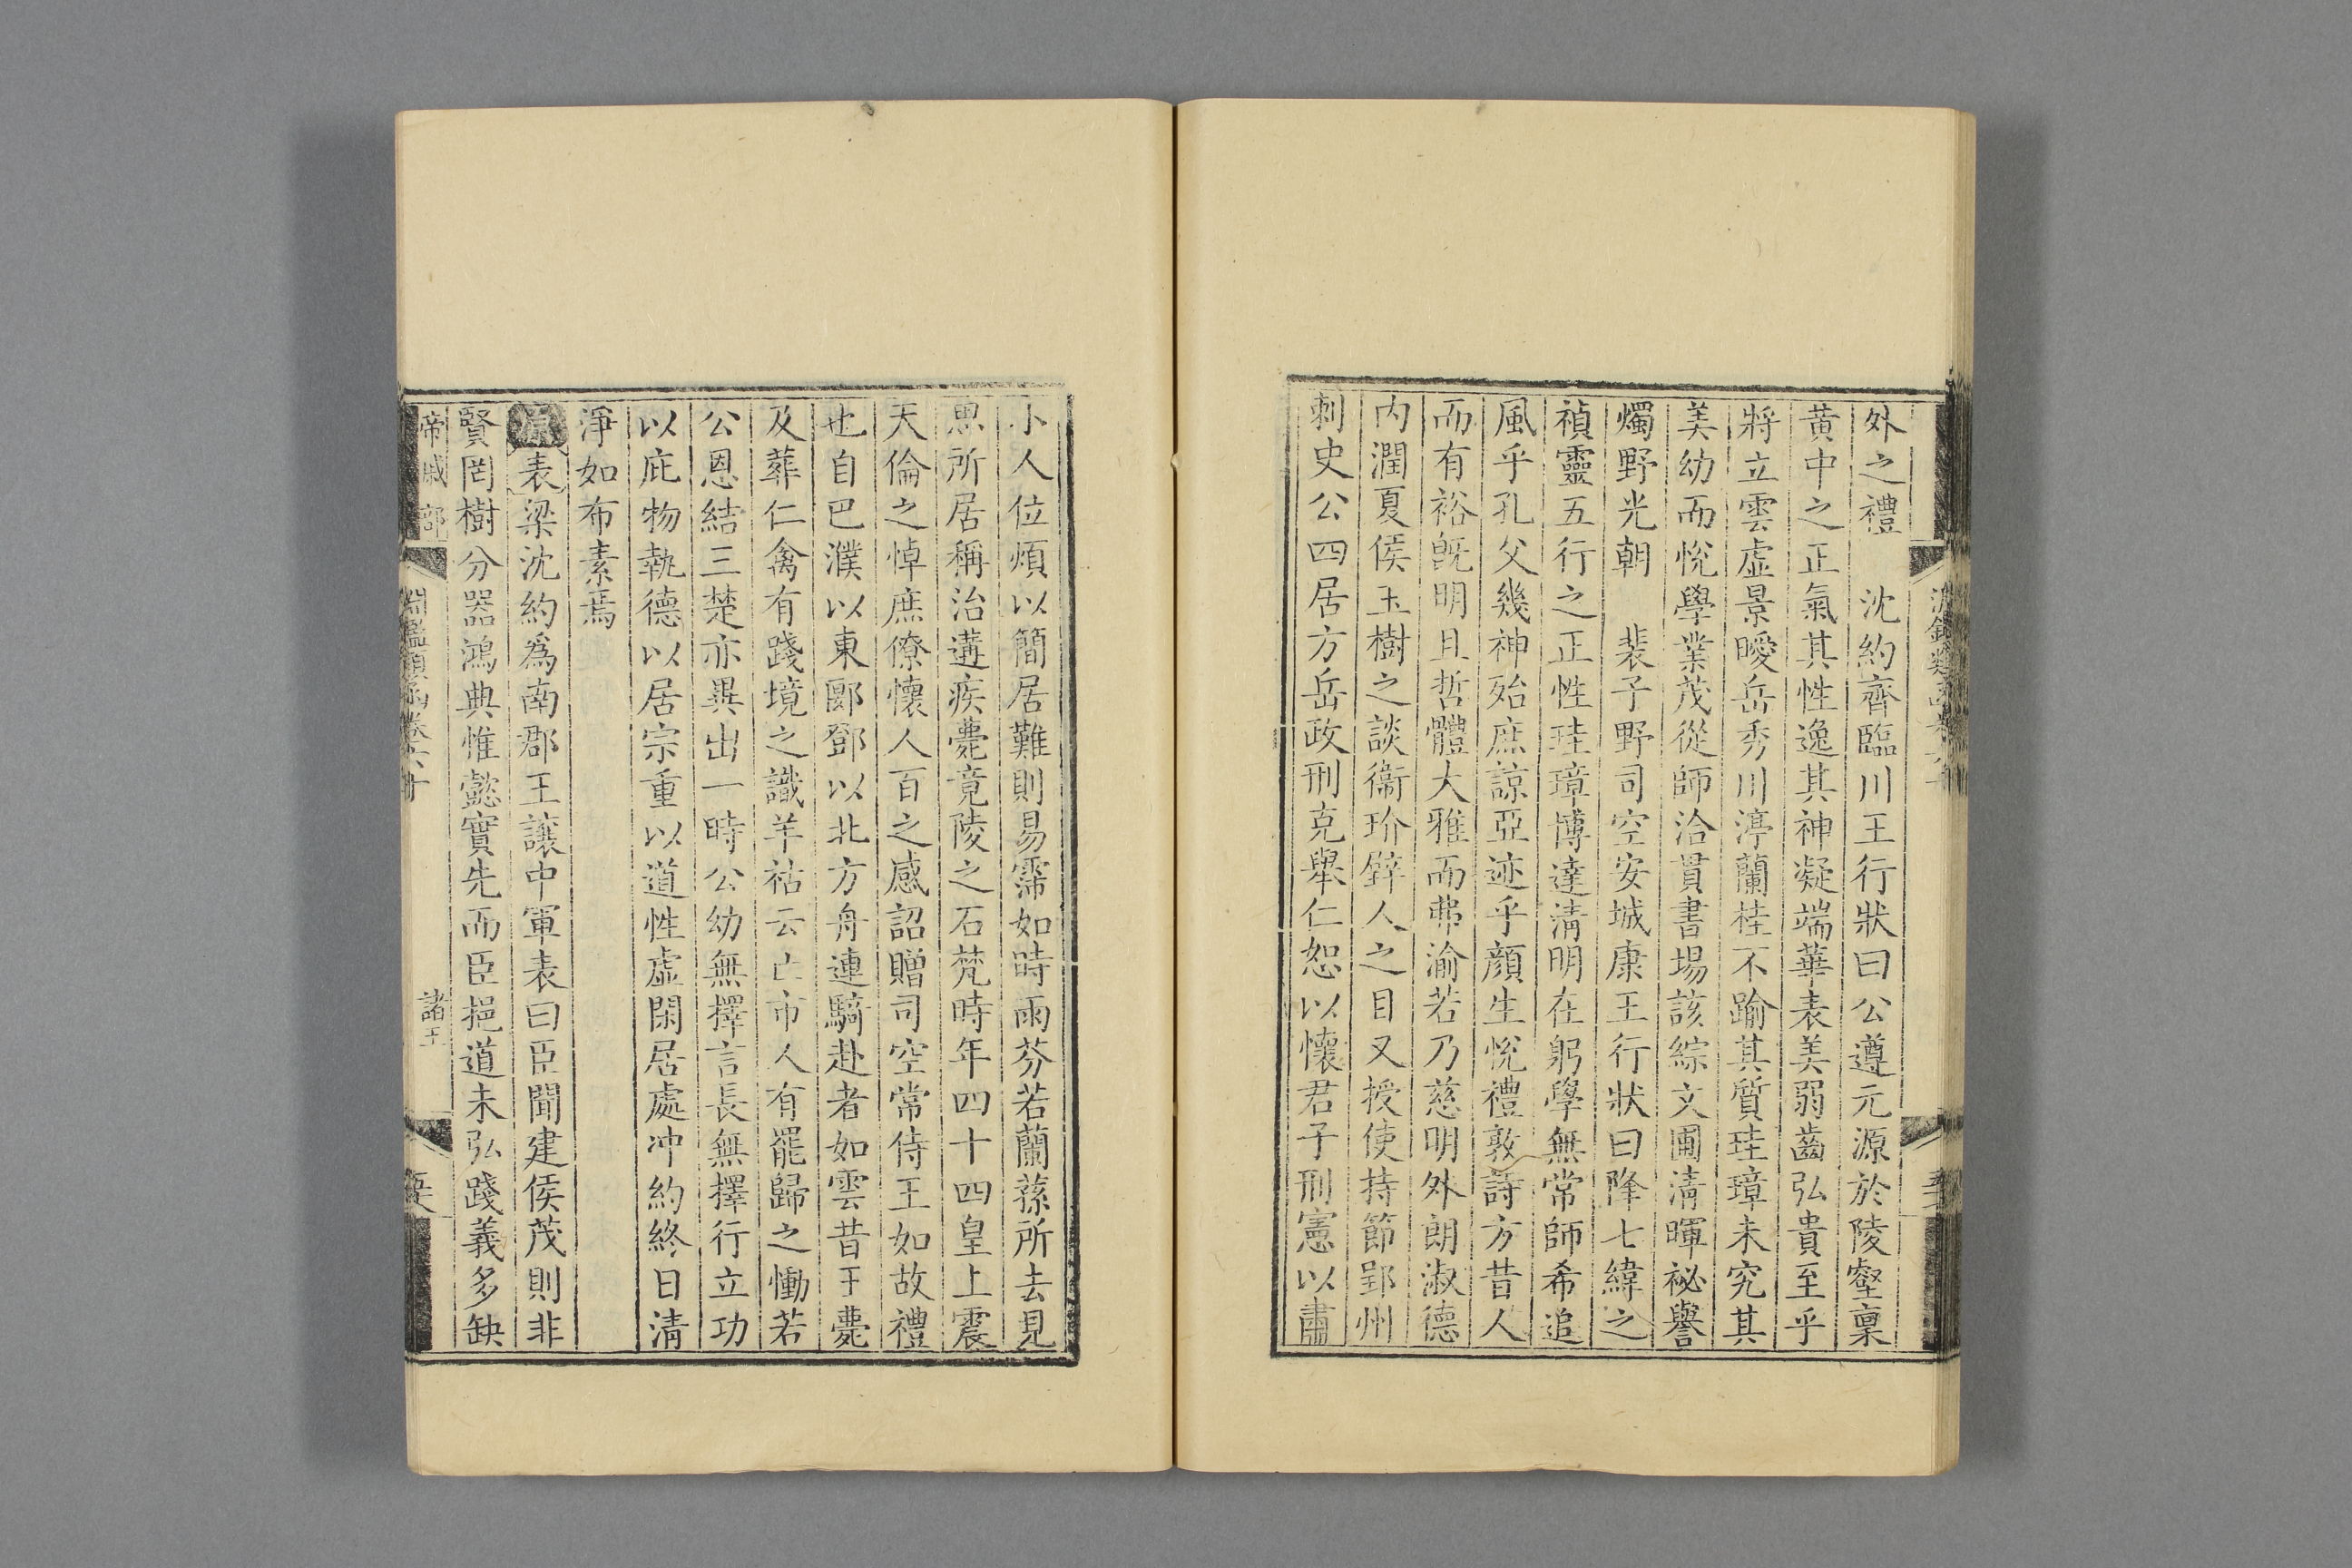 外之禮　沈約齊臨川王行狀曰公遵元源於陵壑稟
黃中之正氣其性逸其神凝端華表美弱齒弘貴至乎
將立雲虛景曖岳秀川渟蘭桂不踰其質珪璋未究其
美幼而悅學業茂從師洽貫書場該綜文圃清暉祕譽
燭野光朝　裴子野司空安城康王行狀曰降七緯之
禎靈五行之正性珪璋博達清明在躬學無常師希追
風乎孔父幾神殆庶諒亞迹乎顏生悅禮敦詩方昔人
而有裕既明且哲體大雅而弗渝若乃慈明外朗淑德
內潤夏侯玉樹之談衞玠璧人之目又授使持節郢州
刺史公四居方岳政刑克舉仁恕以懷君子刑憲以肅
小人位煩以簡居難則易霈如時雨芬若蘭蓀所去見
思所居稱治遘疾薨竟陵之石梵時年四十四皇上震
天倫之悼庶僚懷人百之感詔贈司空常侍王如故禮
也自巴濮以東郾鄧以北方舟連騎赴者如雲昔王薨
及葬仁禽有踐境之識羊祜云亡市人有罷歸之慟若
公恩結三楚亦異出一時公幼無擇言長無擇行立功
以庇物執德以居宗重以道性虛閑居處沖約終日清
淨如布素焉
原表梁沈約爲南郡王讓中軍表曰臣聞建侯茂則非
賢罔樹分器鴻典惟懿實先而臣挹道未弘踐義多缺
帝戚部　淵鑑類函卷六十　諸王